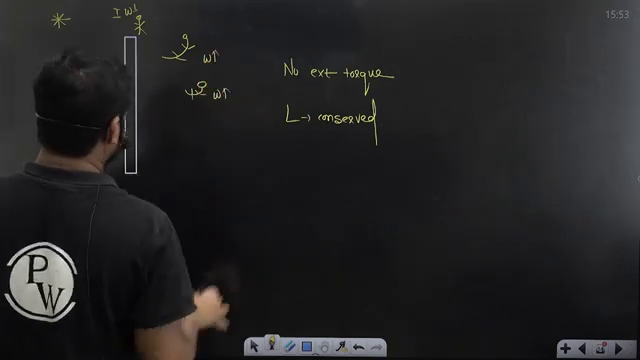 15:53
I ω↓
ω↑
ω↑
No ext torque
L → conserved
PW